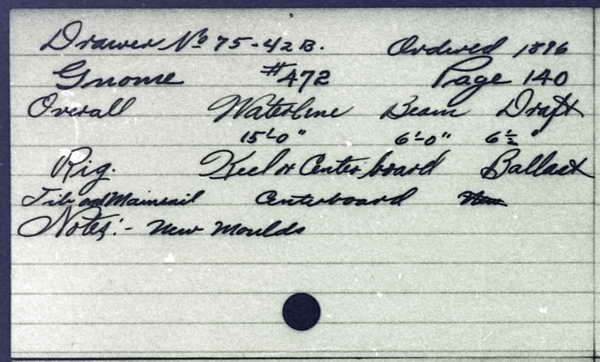 Drawer No 75-42B. Ordered 1896
Gnome #472 Page 140
Overall Waterline Beam Draft
15'-0" 6'-0" 6½"
Rig. Keel or Center board Ballast
Jib and Mainsail Centerboard
Notes:- New Moulds